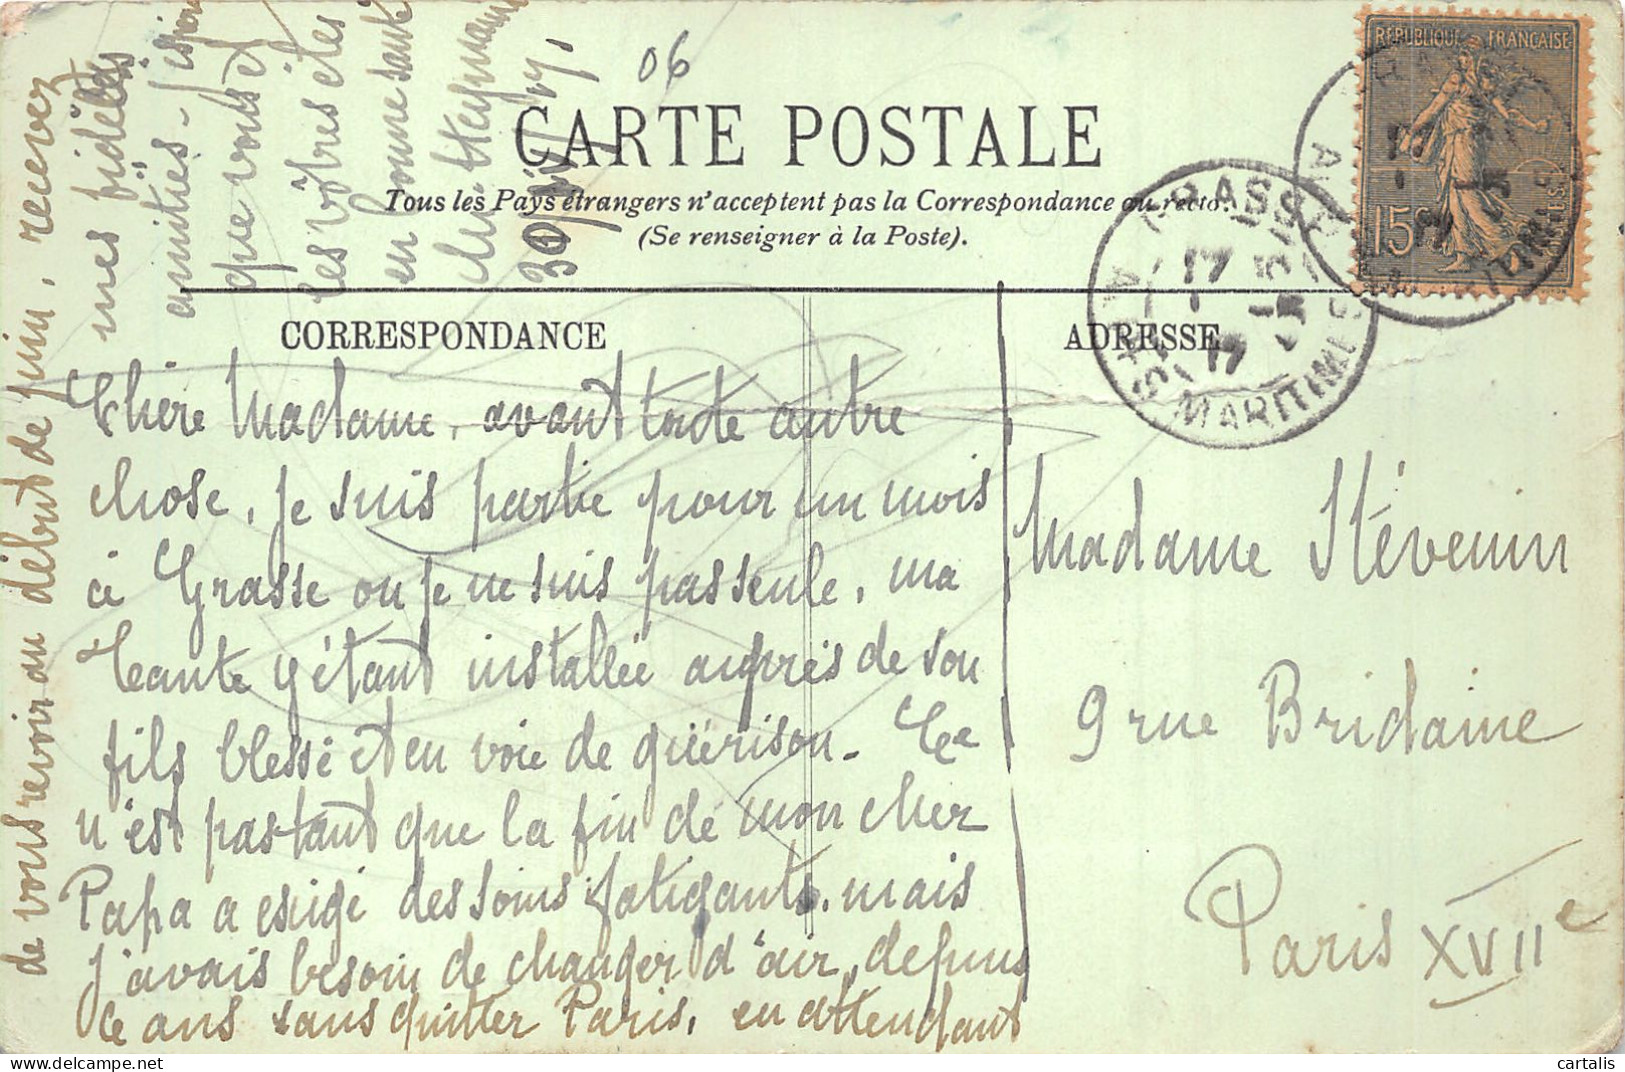 06
RÉPUBLIQUE FRANÇAISE
15c
CARTE POSTALE
Tous les Pays étrangers n'acceptent pas la Correspondance au recto.
(Se renseigner à la Poste).
GRASSE
17
MARITIMES
CORRESPONDANCE
ADRESSE
Chère Madame, avant toute autre
chose, je suis partie pour un mois
à Grasse ou je ne suis pas seule, ma
Tante y étant installée auprès de son
fils blessé et en voie de guérison. Ce
n'est pas tant que la fin de mon cher
Papa a exigé des soins fatigants, mais
j'avais besoin de changer d'air, depuis
ce ans sans quitter Paris, en attendant
de vous revoir au début de juin, recevez
mes fidèles
amitiés - j'espère
que vous et
les vôtres êtes
en bonne santé
Madame Stévenin
9 rue Bridaine
Paris XVIIe
cartalis